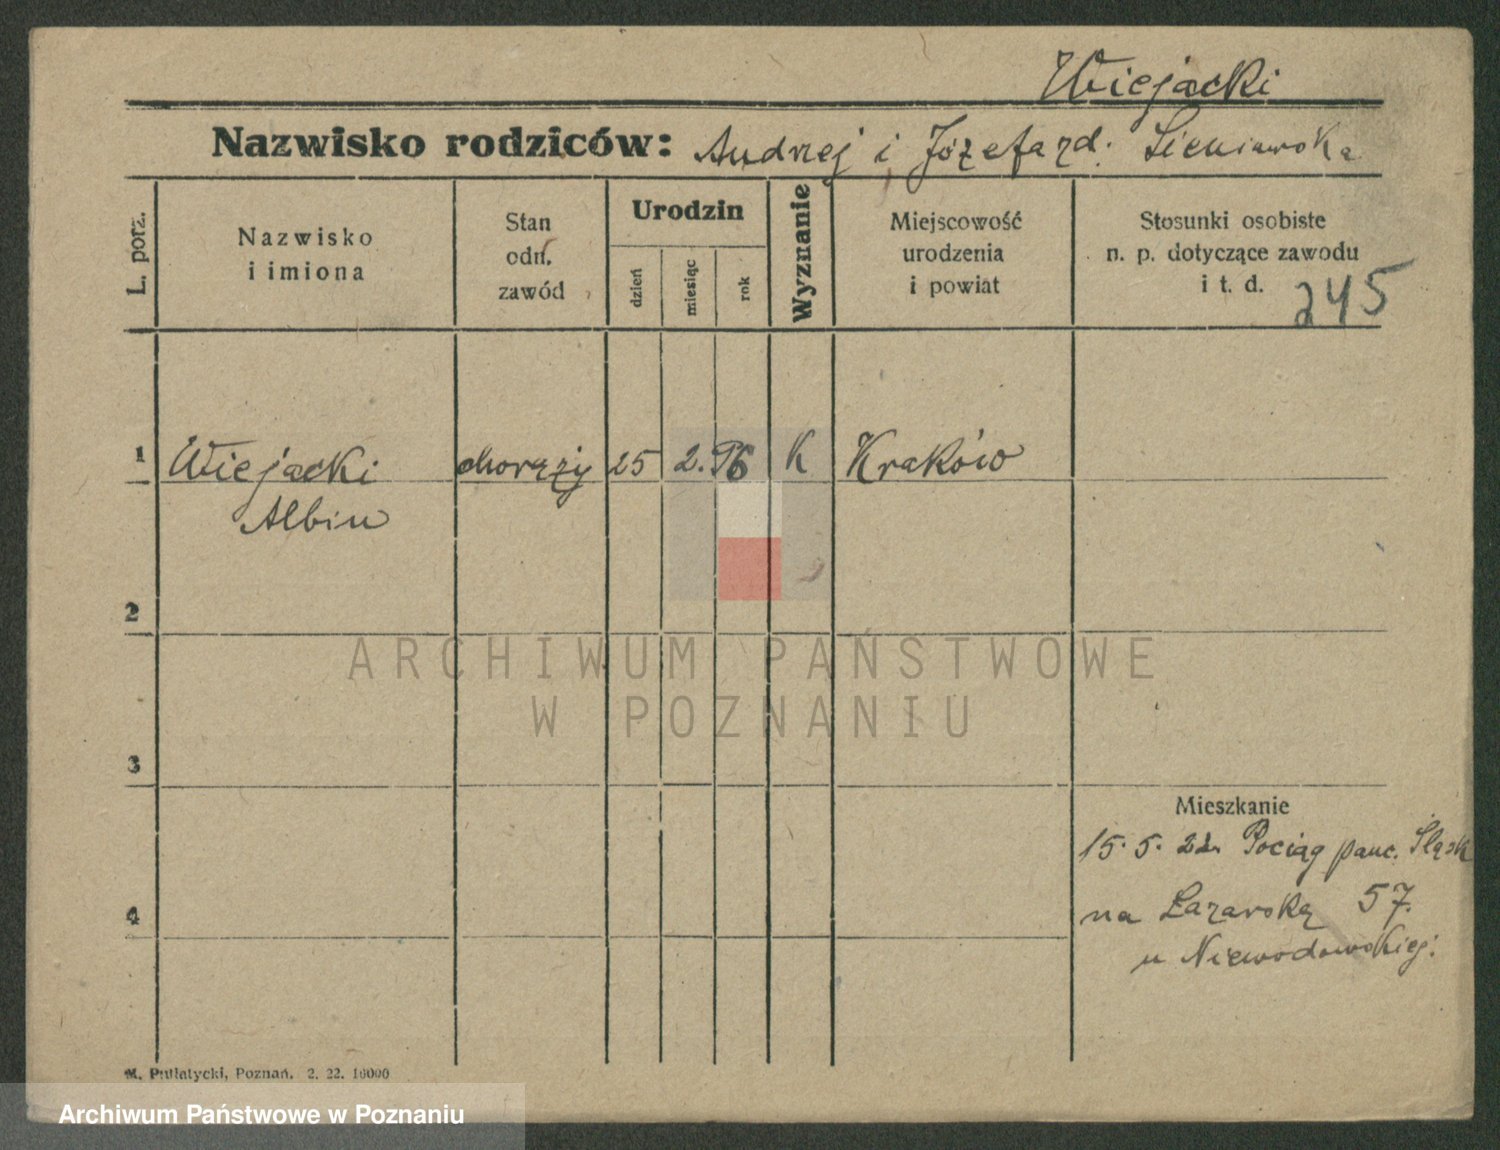 Wiejacki
Nazwisko rodziców: Andrzej i Józefa zd. Sieniawska
L. porz.
Nazwisko
i imiona
Stan
odn.
zawód
Urodzin
dzień
miesiąc
rok
Wyznanie
Miejscowość
urodzenia
i powiat
Stosunki osobiste
n. p. dotyczące zawodu
i t. d.
245
1 Wiejacki chorąży 25 2. 96 K Kraków
Albin
2
ARCHIWUM PAŃSTWOWE
W POZNANIU
3
Mieszkanie
15. 5. 22 Pociąg panc. Śląsk
4
na Łazarską 57.
u Niewodowskiej.
M. Putiatycki, Poznań. 2. 22. 10000
Archiwum Państwowe w Poznaniu